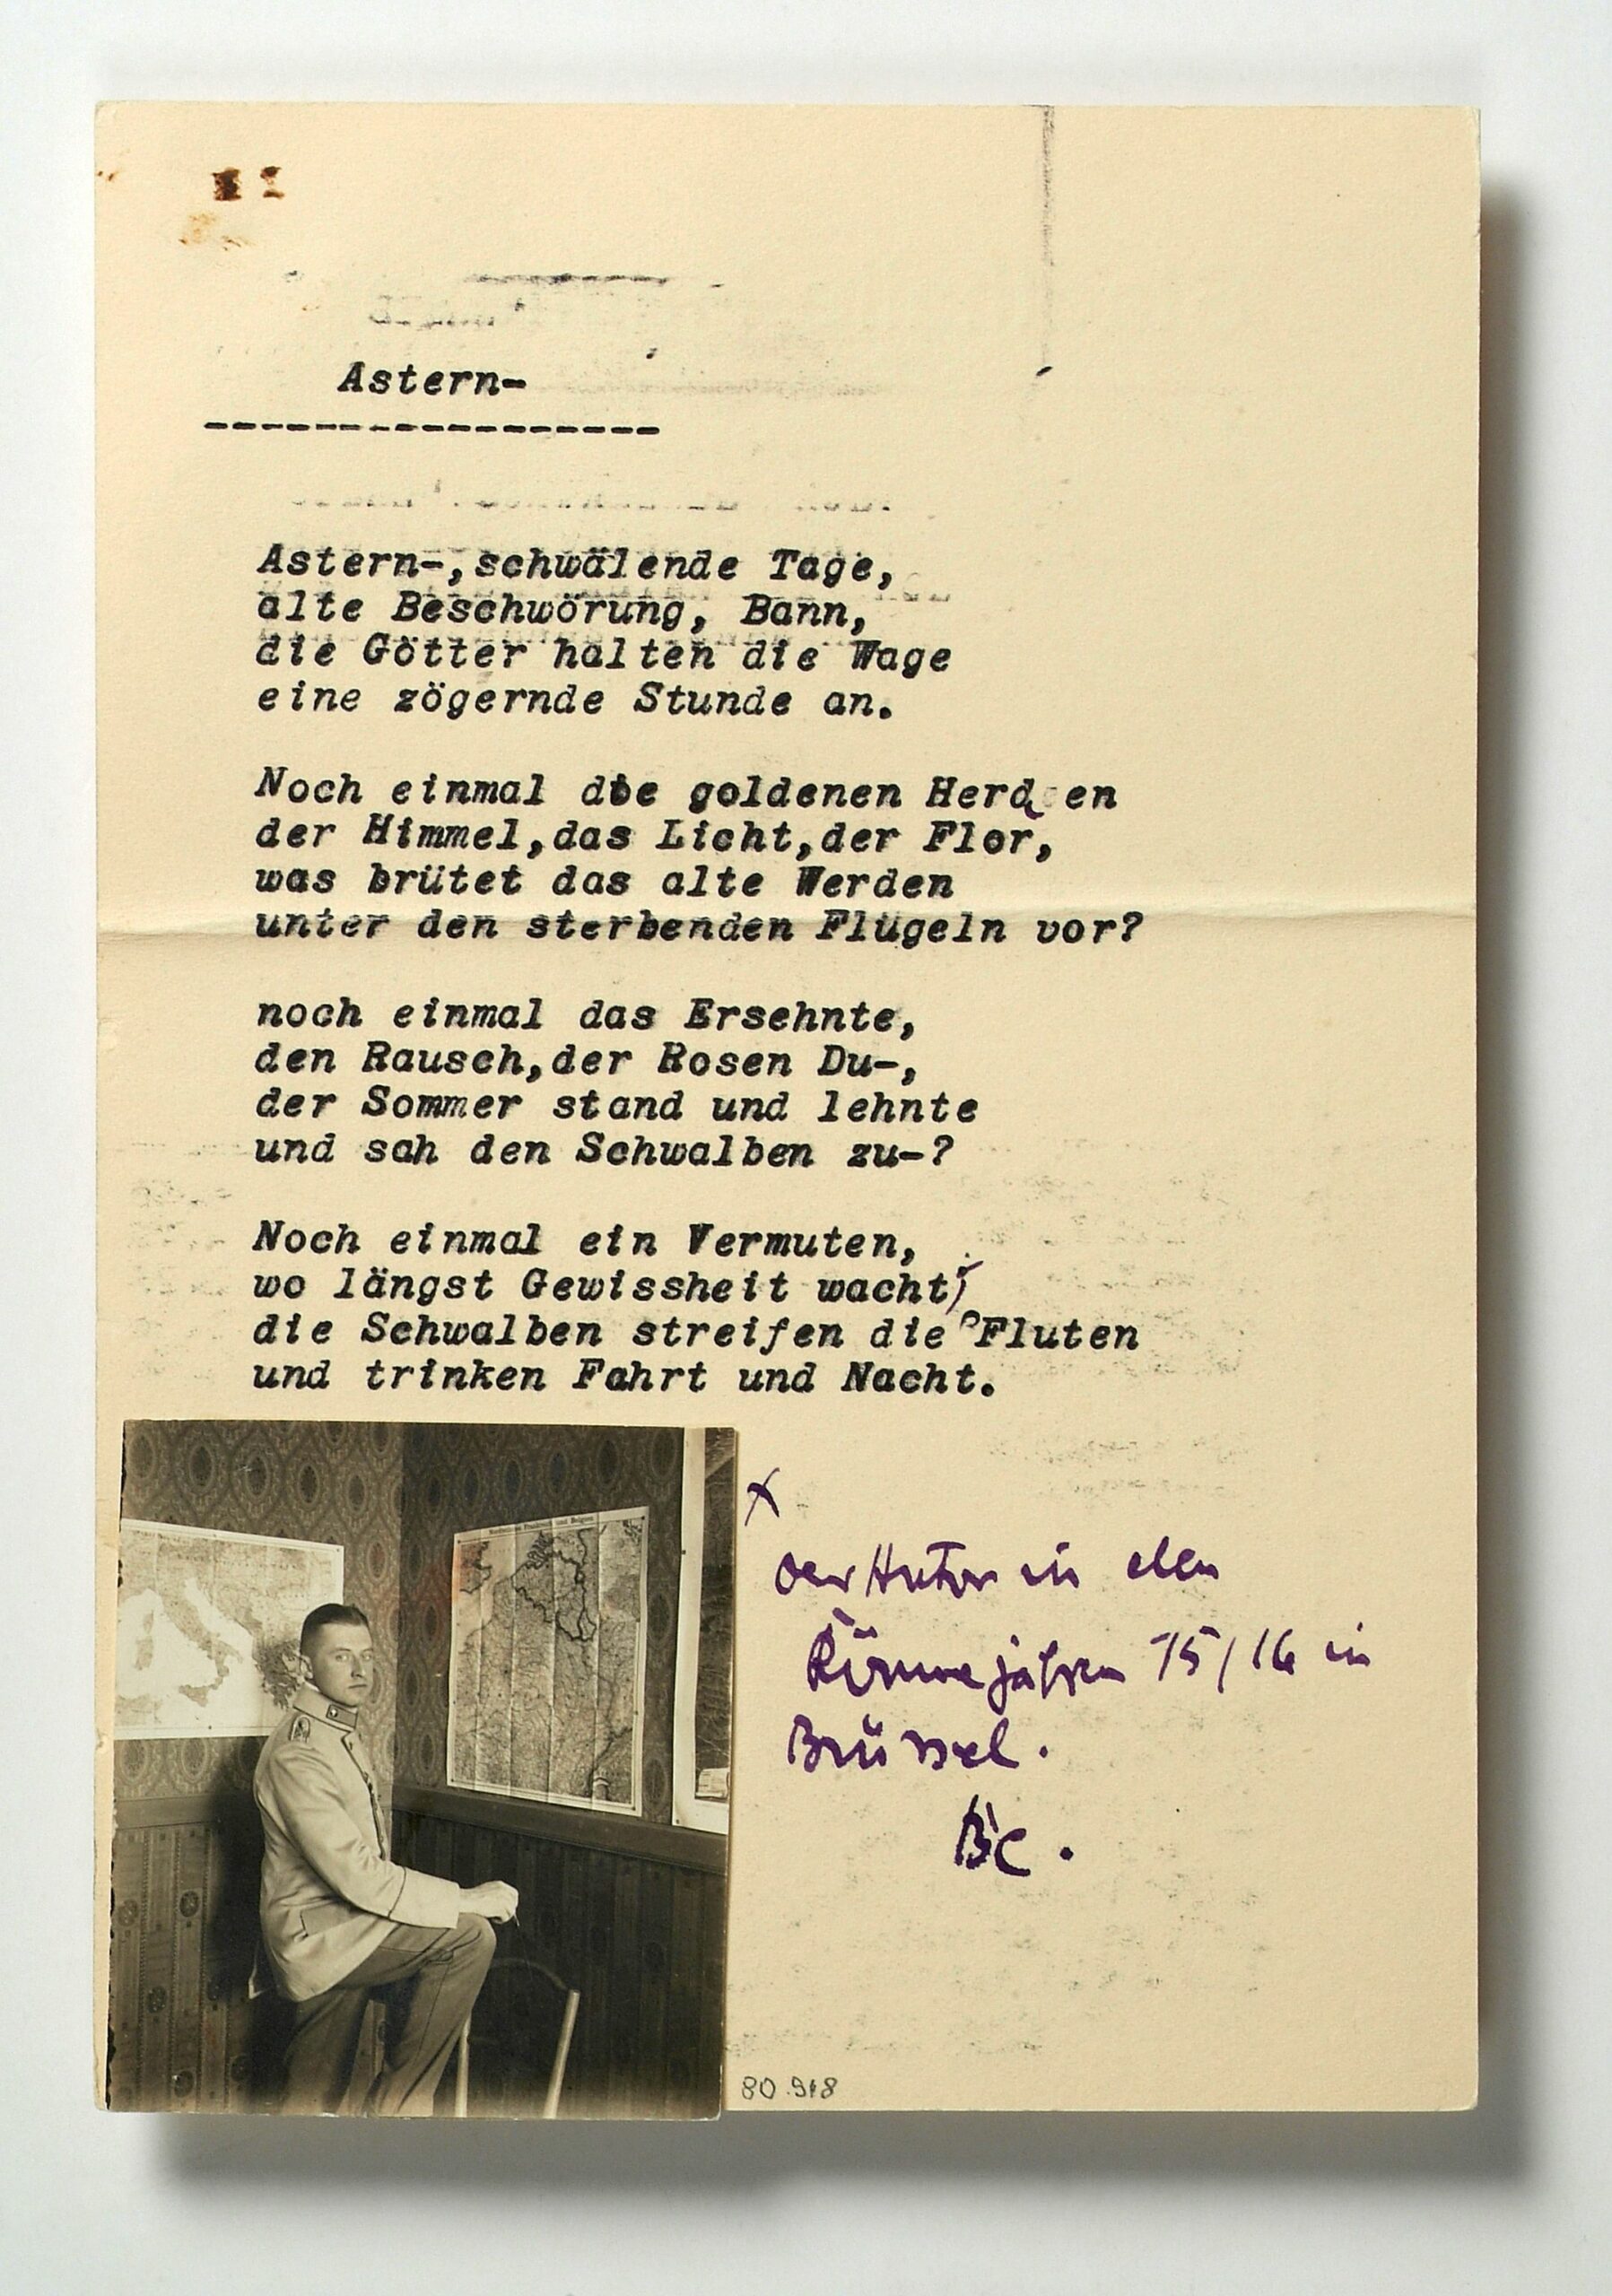 Astern-
-----------------
Astern-,schwälende Tage,
alte Beschwörung, Bann,
die Götter halten die Wage
eine zögernde Stunde an.
Noch einmal die goldenen Herden
der Himmel,das Licht,der Flor,
was brütet das alte Werden
unter den sterbenden Flügeln vor?
noch einmal das Ersehnte,
den Rausch,der Rosen Du-,
der Sommer stand und lehnte
und sah den Schwalben zu-?
Noch einmal ein Vermuten,
wo längst Gewissheit wacht;
die Schwalben streifen die Fluten
und trinken Fahrt und Nacht.
x
Der Autor in den
Rönnejahren 15/16 in
Brüssel.
Be.
80.918